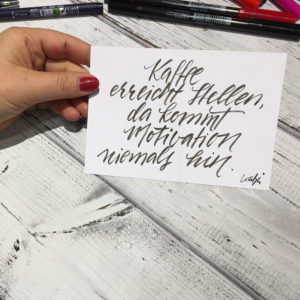 Kaffee
erreicht Stellen,
da kommt
Motivation
niemals hin.